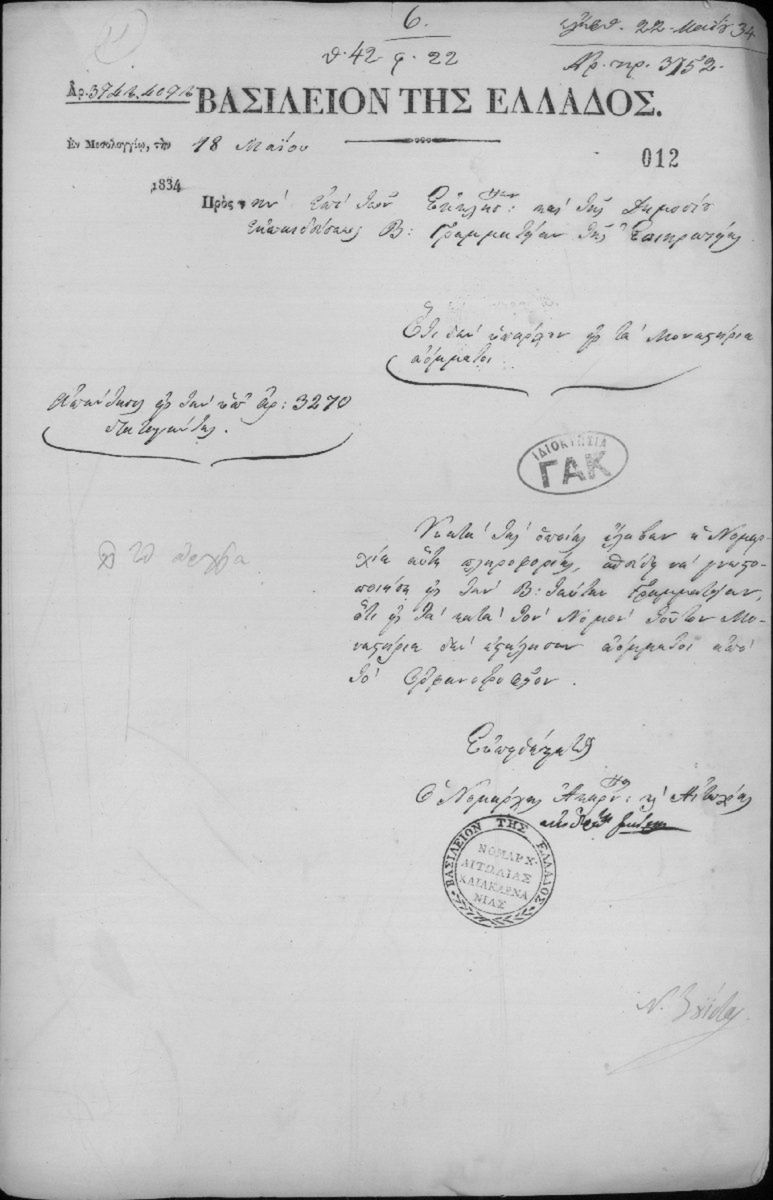 6.
θ. 42 φ. 22
22 Μαΐου 34
Αρ. πρ. 3752.
Ἀρ. 3742.4092
ΒΑΣΙΛΕΙΟΝ ΤΗΣ ΕΛΛΑΔΟΣ.
Ἐν Μεσολογγίῳ, τὴν 18 Μαΐου
1834
012
Πρὸς τὴν ἐπὶ τῶν Ἐκκλησ: καὶ τῆς Δημοσίου
Ἐκπαιδεύσεως Β: Γραμματείαν τῆς Ἐπικρατείας
Ὅτι δὲν ὑπάρχουν εἰς τὰ Μοναστήρια
ἀόμματοι
Ἀπάντησις εἰς τὴν ὑπ' ἀρ: 3270
διαταγήν της.
ΙΔΙΟΚΤΗΣΙΑ
ΓΑΚ
Κατὰ τὰς ὁποίας ἔλαβεν ἡ Νομαρ-
χία αὕτη πληροφορίας, σπεύδει νὰ γνωστο-
ποιήσῃ εἰς τὴν Β: ταύτην Γραμματείαν,
ὅτι εἰς τὰ κατὰ τὸν Νομὸν τοῦτον Μο-
ναστήρια δὲν ἐστάλησαν ἀόμματοι ἀπὸ
τὸ Ὀρφανοτροφεῖον.
Εὐπειθέστατος
Ὁ Νομάρχης Ἀκαρν: κ' Αἰτωλίας
ΒΑΣΙΛΕΙΟΝ ΤΗΣ ΕΛΛΑΔΟΣ
ΝΟΜΑΡΧ.
ΑΙΤΩΛΙΑΣ
ΚΑΙ ΑΚΑΡΝΑ
ΝΙΑΣ